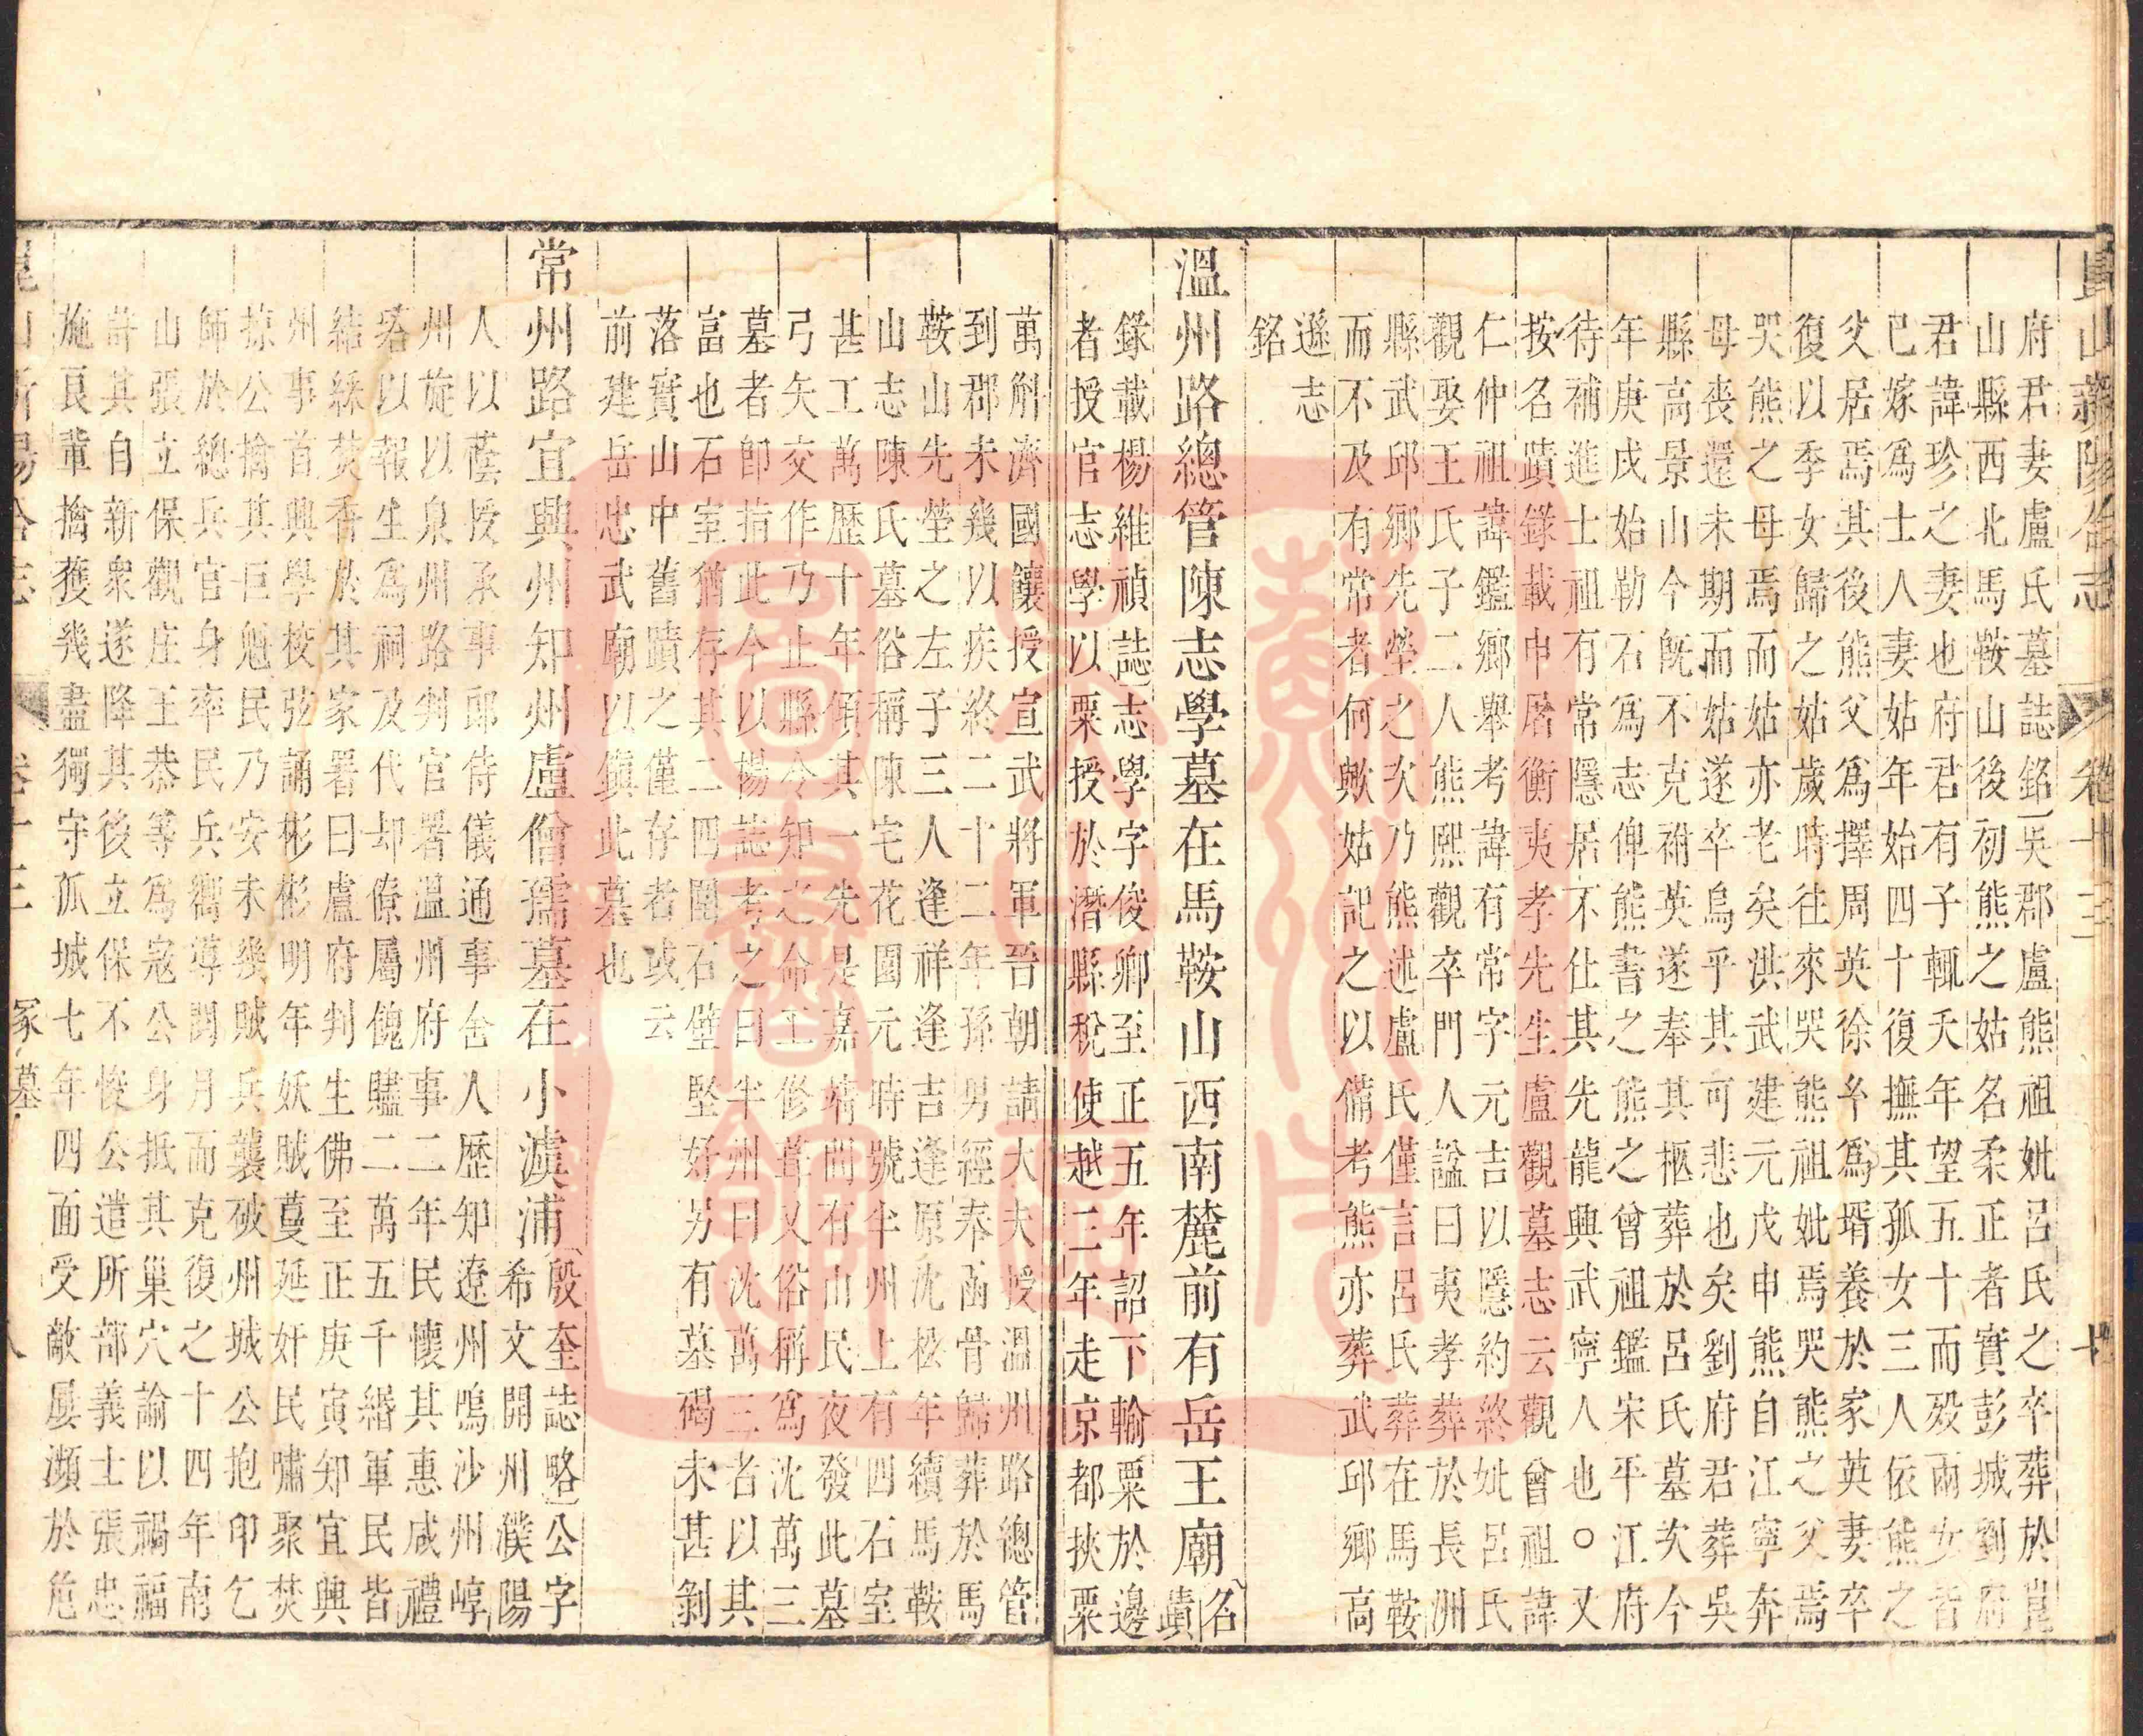 崑山新陽合志 卷十三 十
府君妻盧氏墓誌銘吳郡盧熊祖妣呂氏之卒葬於崑
山縣西北馬鞍山後初熊之姑名柔正者實彭城劉府
君諱珍之妻也府君有子輒夭年望五十而歿兩女皆
已嫁爲士人妻姑年始四十復撫其孤女三人依熊之
父居焉其後熊父爲擇周英徐年爲壻養於家英妻卒
復以季女歸之姑歲時往來哭熊祖妣焉哭熊之父焉
哭熊之母焉而姑亦老矣洪武建元戊申熊自江寧奔
母喪還未期而姑遂卒烏乎其可悲也矣劉府君葬吳
縣高景山今旣不克祔英遂奉其柩葬於呂氏墓次今
年庚戌始勒石爲志俾熊書之熊之曾祖鑑宋平江府
待補進士祖有常隱居不仕其先龍興武寧人也○又
按名蹟錄載申屠衡夷孝先生盧觀墓志云觀曾祖諱
仁仲祖諱鑑鄉舉考諱有常字元吉以隱約終妣呂氏
觀娶王氏子二人熊熙觀卒門人諡曰夷孝葬於長洲
縣武邱鄉先塋之次乃熊述盧氏僅言呂氏葬在馬鞍
而不及有常者何歟姑記之以備考熊亦葬武邱鄉高
遜志
銘
溫州路總管陳志學墓在馬鞍山西南麓前有岳王廟 名蹟
錄載楊維禎誌志學字俊卿至正五年詔下輸粟於邊
者授官志學以粟授於潛縣稅使越二年走京都挾粟
萬斛濟國饟授宣武將軍晉朝請大夫授溫州路總管
到郡未幾以疾終二十二年孫男經奉函骨歸葬於馬
鞍山先塋之左子三人逢祥逢吉逢原沈松年續馬鞍
山志陳氏墓俗稱陳宅花園元時號半州上有四石室
甚工萬歷十年傾其一先是嘉靖間有山民夜發此墓
弓矢交作乃止縣令知之命工修葺又俗稱爲沈萬三
墓者卽指此今以楊誌考之曰半州曰沈萬三者以其
富也石室猶存其二四圍石壁堅好另有墓碣未甚剝
落實山中舊蹟之僅存者或云
前建岳忠武廟以鎭此墓也
常州路宜興州知州盧僧孺墓在小澞浦 殷奎誌略公字
希文開州濮陽
人以蔭授承事郎侍儀通事舍人歷知遼州鳴沙州崞
州旋以泉州路判官署溫州府事二年民懷其惠咸禮
塔以報生爲祠及代却僚屬餽贐二萬五千緡軍民皆
結綵焚香於其家署曰盧府判生佛至正庚寅知宜興
州事首興學校弦誦彬彬明年妖賊蔓延奸民嘯聚焚
掠公擒其巨魁民乃安未幾賊兵襲破州城公抱印乞
師於總兵官身率民兵嚮導閱月而克復之十四年南
山張立保觀庄王恭等爲寇公身抵其巢穴諭以禍福
許其自新衆遂降其後立保不悛公遣所部義士張忠
施良輩擒獲幾盡獨守孤城七年四面受敵屢瀕於危
崑山新陽合志 卷十三 冢墓
圖書館